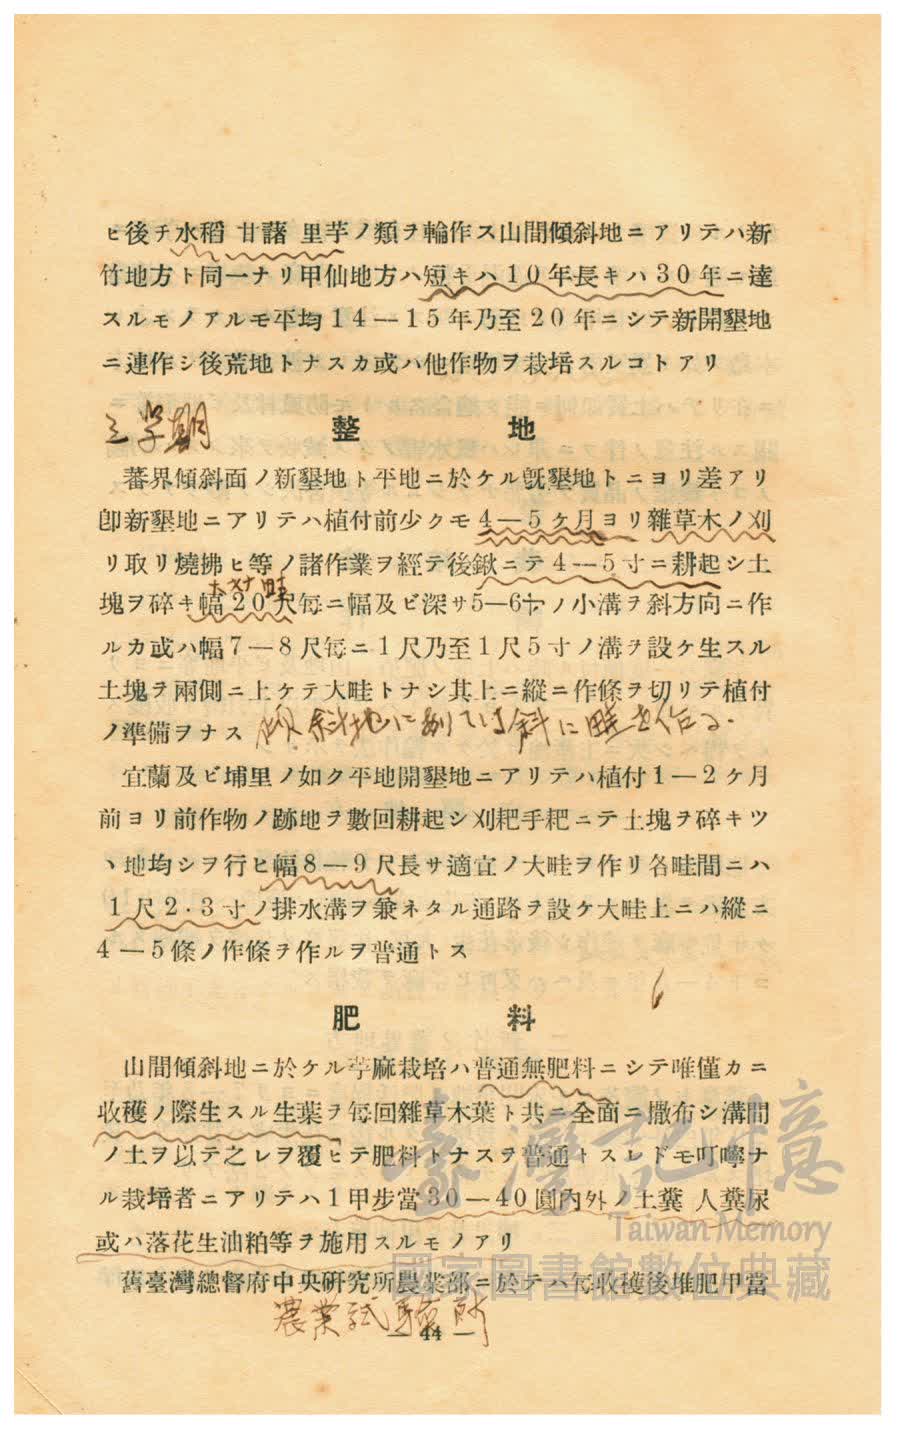 ヒ後チ水稻 甘藷 里芋ノ類ヲ輪作ス山間傾斜地ニアリテハ新
竹地方ト同一ナリ甲仙地方ハ短キハ10年長キハ30年ニ達
スルモノアルモ平均14—15年乃至20年ニシテ新開墾地
ニ連作シ後荒地トナスカ或ハ他作物ヲ栽培スルコトアリ
三学期
整地
蕃界傾斜面ノ新墾地ト平地ニ於ケル既墾地トニヨリ差アリ
卽新墾地ニアリテハ植付前少クモ4—5ケ月ヨリ雜草木ノ刈
リ取リ燒拂ヒ等ノ諸作業ヲ經テ後鍬ニテ4—5寸ニ耕起シ土
塊ヲ碎キ幅20尺每ニ幅及ビ深サ5—6寸ノ小溝ヲ斜方向ニ作
ルカ或ハ幅7—8尺每ニ1尺乃至1尺5寸ノ溝ヲ設ケ生スル
土塊ヲ兩側ニ上ケテ大畦トナシ其上ニ縱ニ作條ヲ切リテ植付
ノ準備ヲナス
傾斜地に於ては斜に畦を作る.
宜蘭及ビ埔里ノ如ク平地開墾地ニアリテハ植付1—2ケ月
前ヨリ前作物ノ跡地ヲ數回耕起シ刈耙手耙ニテ土塊ヲ碎キツ
ヽ地均シヲ行ヒ幅8—9尺長サ適宜ノ大畦ヲ作リ各畦間ニハ
1尺2.3寸ノ排水溝ヲ兼ネタル通路ヲ設ケ大畦上ニハ縱ニ
4—5條ノ作條ヲ作ルヲ普通トス
肥料
山間傾斜地ニ於ケル苧麻栽培ハ普通無肥料ニシテ唯僅カニ
收穫ノ際生スル生葉ヲ每回雜草木葉ト共ニ全面ニ撒布シ溝間
ノ土ヲ以テ之レヲ覆ヒテ肥料トナスヲ普通トスレドモ叮嚀ナ
ル栽培者ニアリテハ1甲步當30—40圓內外ノ土糞 人糞尿
或ハ落花生油粕等ヲ施用スルモノアリ
舊臺灣總督府中央硏究所農業部ニ於テハ每收穫後堆肥甲當
農業試驗所
— 44 —
臺灣記憶
Taiwan Memory
國家圖書館數位典藏